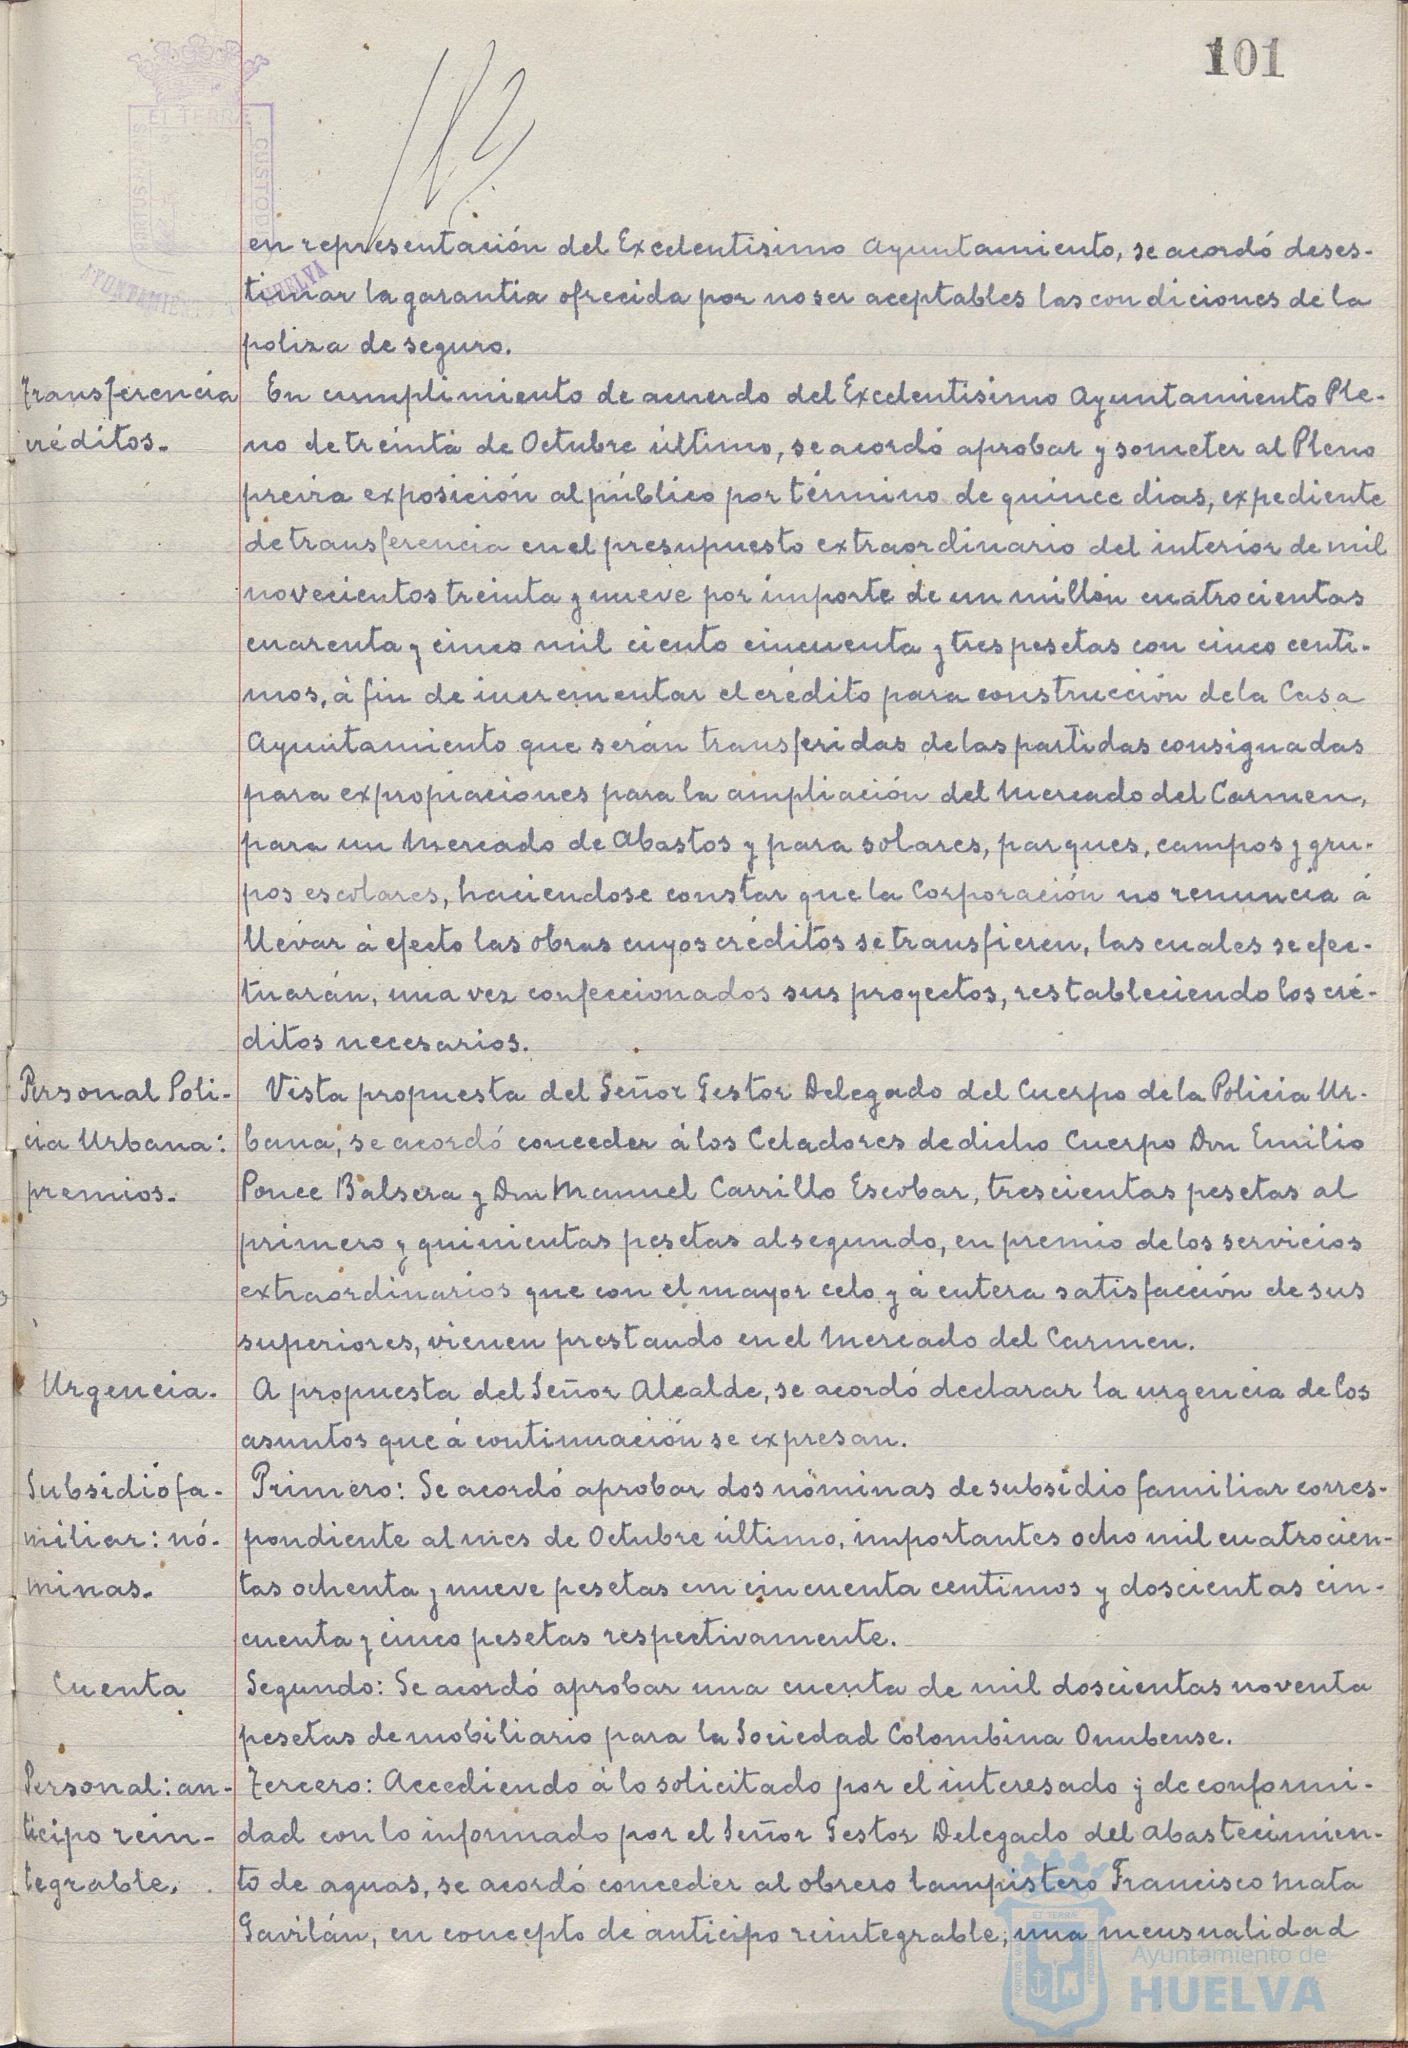 101
ET TERRÆ
CUSTOD
AYUNTAMIEN HUELVA
en representación del Excelentisimo Ayuntamiento, se acordó deses-
timar la garantia ofrecida por no ser aceptables las condiciones de la
poliza de seguro.
Transferencia
créditos.
En cumplimiento de acuerdo del Excelentisimo Ayuntamiento Ple-
no de treinta de Octubre último, se acordó aprobar y someter al Pleno
previa exposición al público por término de quince dias, expediente
de transferencia en el presupuesto extraordinario del interior de mil
novecientos treinta y nueve por importe de un millón cuatrocientas
cuarenta y cinco mil ciento cincuenta y tres pesetas con cinco centi-
mos, á fin de incrementar el crédito para construcción de la Casa
Ayuntamiento que serán transferidas de las partidas consignadas
para expropiaciones para la ampliación del Mercado del Carmen,
para un Mercado de Abastos y para solares, parques, campos y gru-
pos escolares, haciendose constar que la Corporación no renuncia á
llevar á efecto las obras cuyos créditos se transfieren, las cuales se efec-
tuarán, una vez confeccionados sus proyectos, restableciendo los cré-
ditos necesarios.
Personal Poli-
cia Urbana:
premios.
Vista propuesta del Señor Gestor Delegado del Cuerpo de la Policia Ur-
bana, se acordó conceder á los Celadores de dicho Cuerpo Don Emilio
Ponce Balsera y Don Manuel Carrillo Escobar, trescientas pesetas al
primero y quinientas pesetas al segundo, en premio de los servicios
extraordinarios que con el mayor celo y á entera satisfacción de sus
superiores, vienen prestando en el Mercado del Carmen.
Urgencia.
A propuesta del Señor Alcalde, se acordó declarar la urgencia de los
asuntos que á continuación se expresan.
Subsidio fa-
miliar: nó-
minas.
Primero: Se acordó aprobar dos nóminas de subsidio familiar corres-
pondiente al mes de Octubre último, importantes ocho mil cuatrocien-
tas ochenta y nueve pesetas con cincuenta centimos y doscientas cin-
cuenta y cinco pesetas respectivamente.
Cuenta
Segundo: Se acordó aprobar una cuenta de mil doscientas noventa
pesetas de mobiliario para la Sociedad Colombina Onubense.
Personal: an-
ticipo rein-
tegrable.
Tercero: Accediendo á lo solicitado por el interesado y de conformi-
dad con lo informado por el Señor Gestor Delegado del abastecimien-
to de aguas, se acordó conceder al obrero lampistero Francisco Mata
Gavilán, en concepto de anticipo reintegrable, una mensualidad
Ayuntamiento de
HUELVA